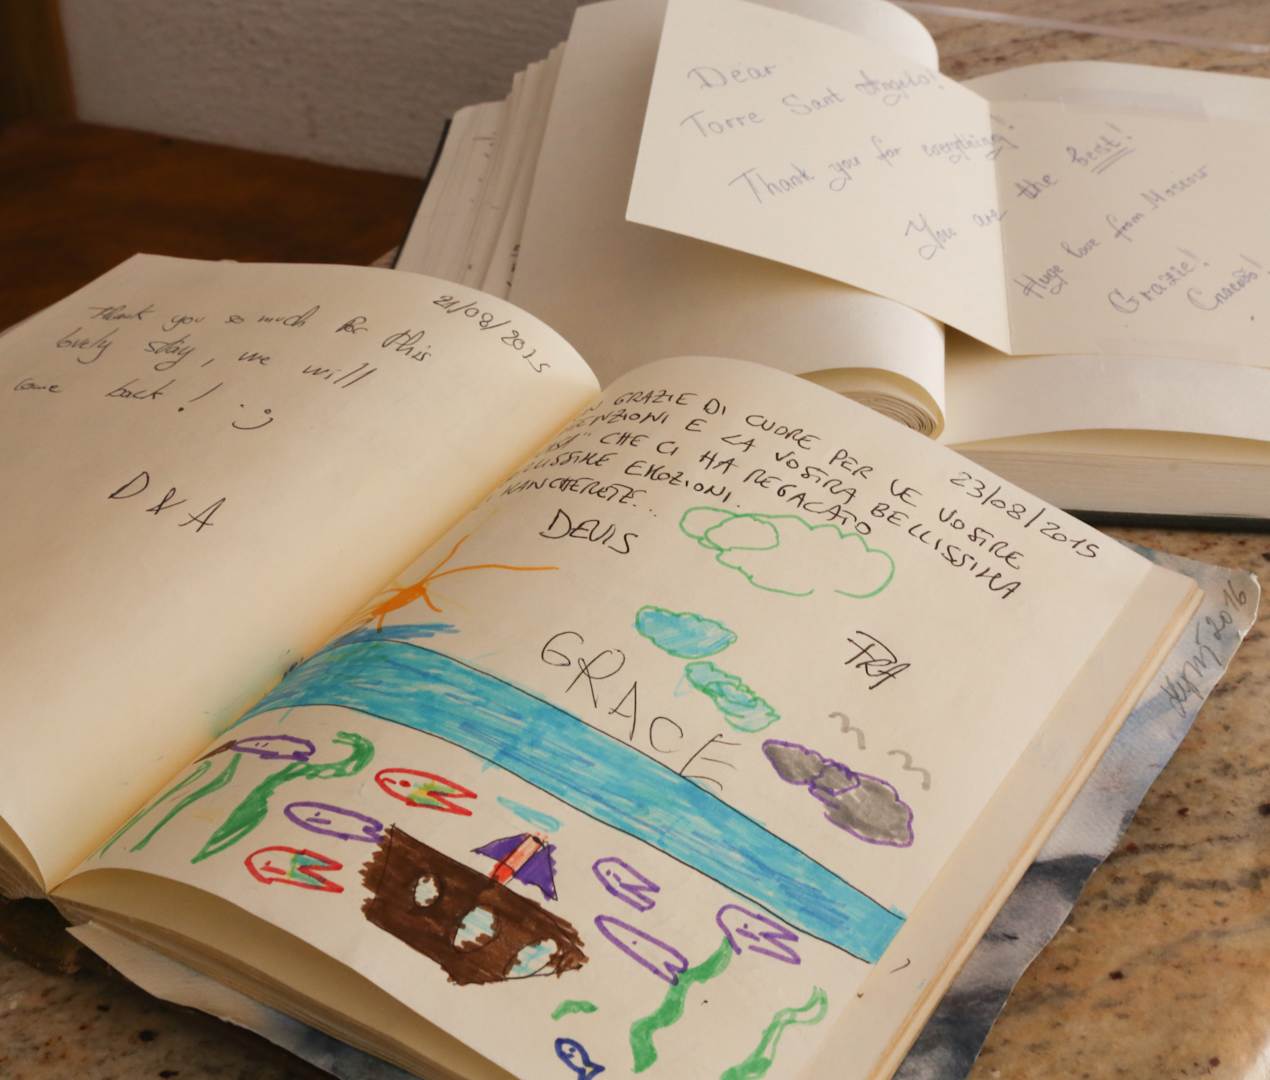 21/08/2015
Thank you so much for this
lovely stay, we will
come back! :)
D & A
23/08/2015
GRAZIE DI CUORE PER LE VOSTRE
E LA VOSTRA BELLISSIMA
" CHE CI HA REGALATO
EMOZIONI.
DEVIS
FRA
GRACE
Dear
Torre Sant Angelo!
Thank you for everything!
You are the best!
Huge love from Moscow
Grazie!
Спасибо!
2016